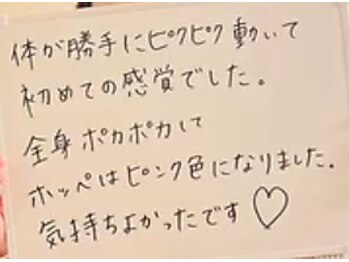 体が勝手にピクピク動いて
初めての感覚でした。
全身ポカポカして
ホッペはピンク色になりました。
気持ちよかったです♡